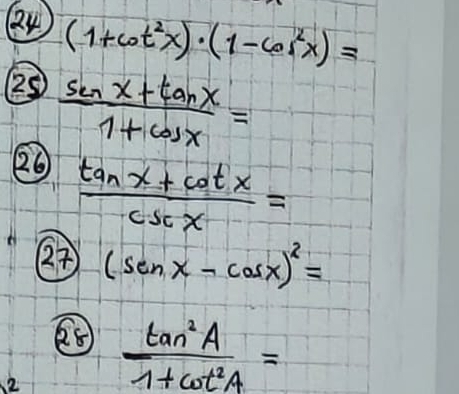 24 (1+cot²x)·(1-cos²x) =
25 sen x + tan x
1 + cos x =
26 tan x + cot x
csc x =
27 (sen x - cos x)² =
28 tan² A
1 + cot² A =
2